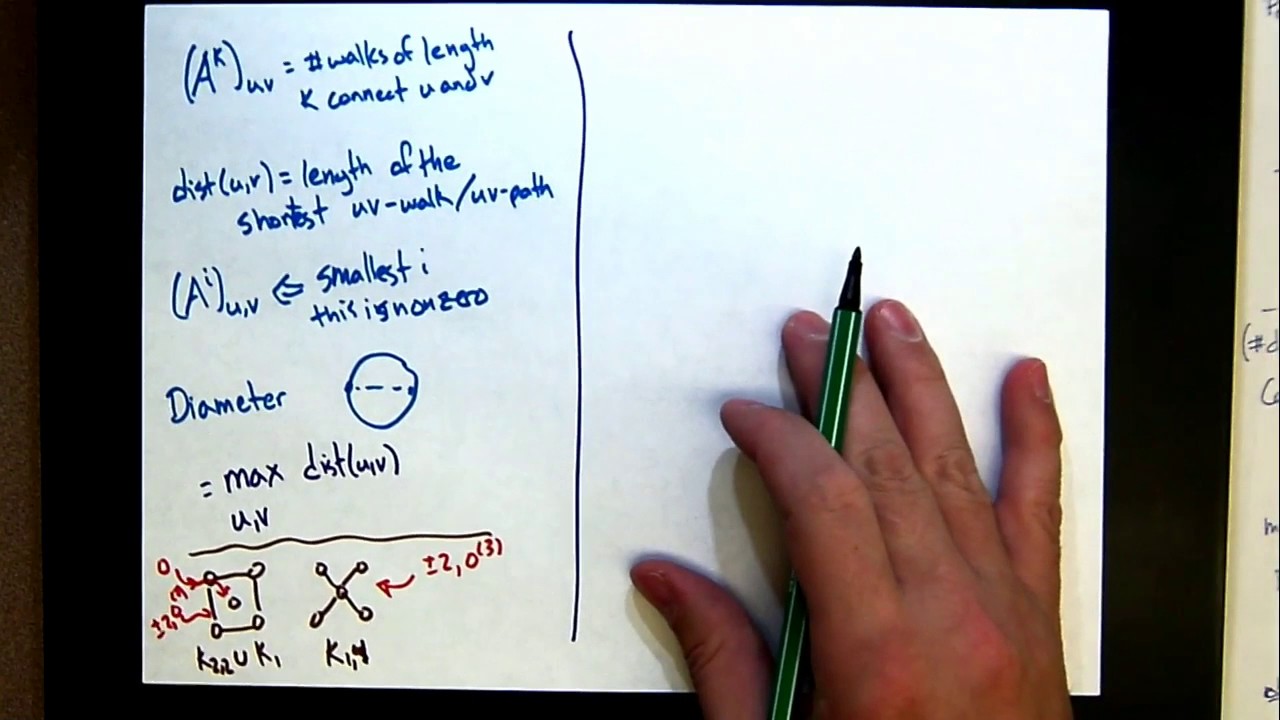 (A^k)_uv = # walks of length
k connect u and v
dist(u,v) = length of the
shortest uv-walk/uv-path
(A^i)_u,v ⇐ smallest i
this is nonzero
Diameter
= max dist(u,v)
u,v
0
±2,0
±2, 0^(3)
K_2,2 ∪ K_1
K_1,4
(#